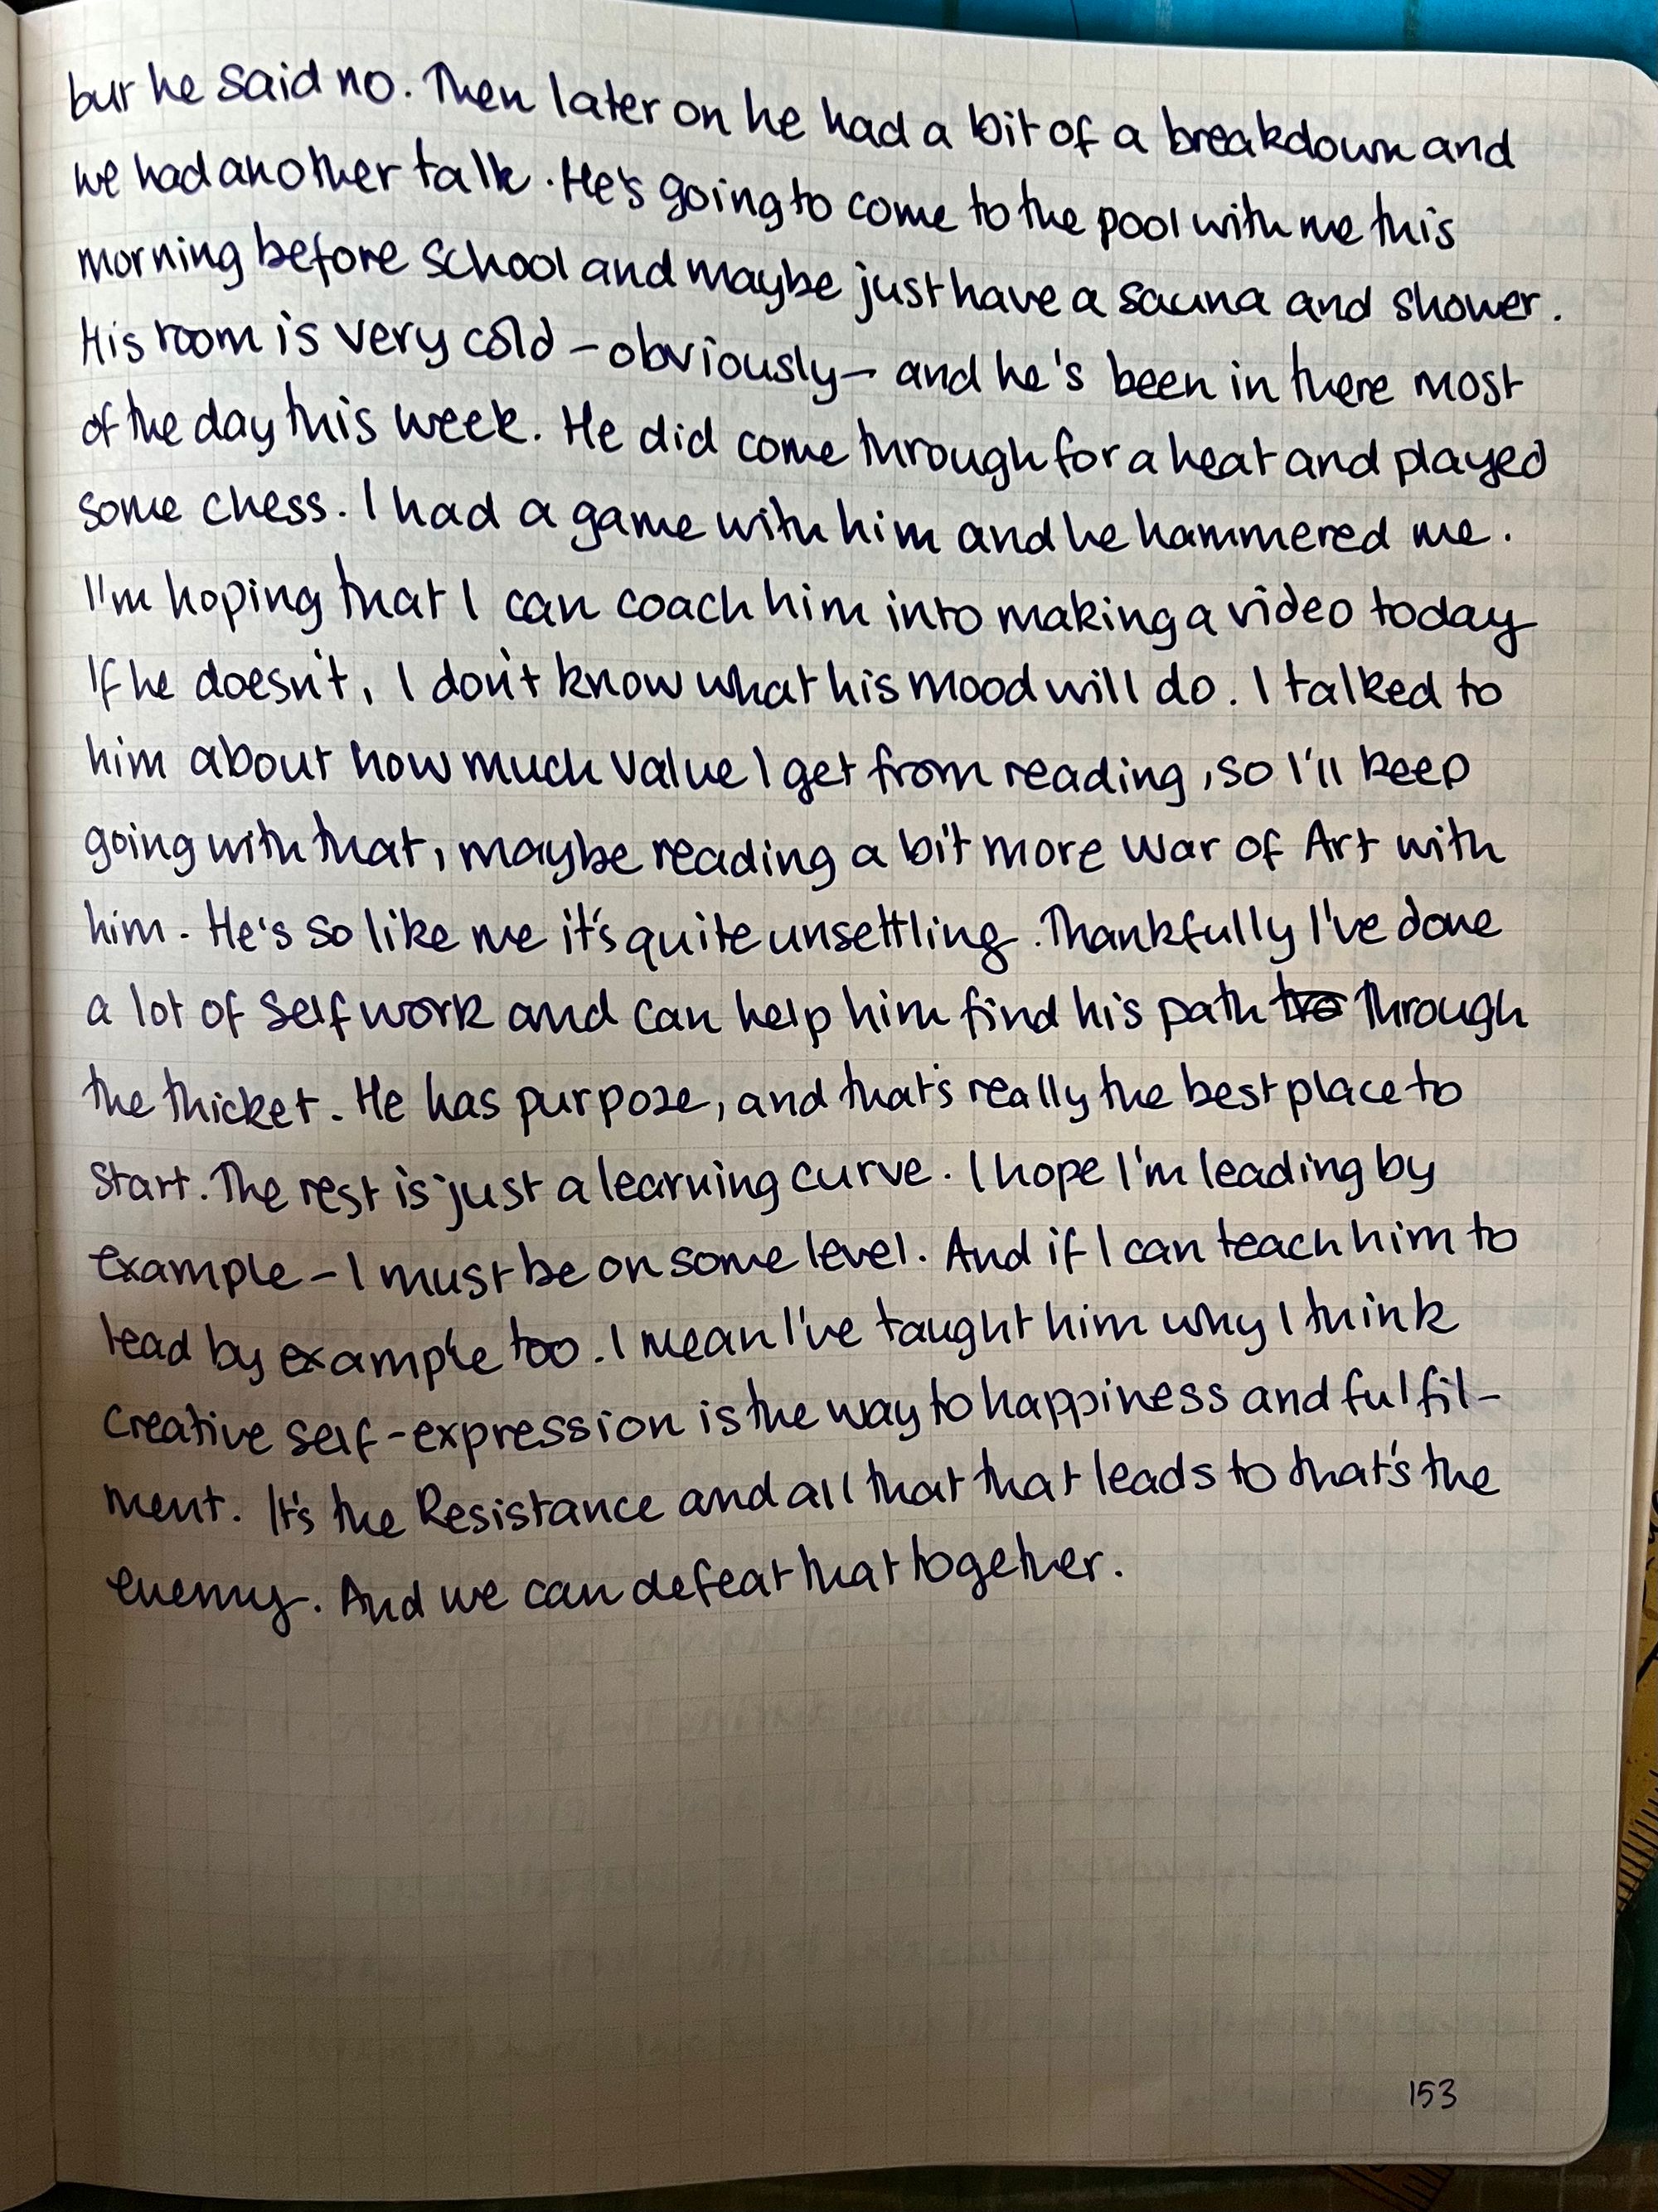 but he said no. Then later on he had a bit of a breakdown and
we had another talk. He's going to come to the pool with me this
morning before school and maybe just have a sauna and shower.
His room is very cold – obviously – and he's been in there most
of the day this week. He did come through for a heat and played
some chess. I had a game with him and he hammered me.
I'm hoping that I can coach him into making a video today
If he doesn't, I don't know what his mood will do. I talked to
him about how much value I get from reading, so I'll keep
going with that, maybe reading a bit more War of Art with
him. He's so like me it's quite unsettling. Thankfully I've done
a lot of self work and can help him find his path through
the thicket. He has purpose, and that's really the best place to
start. The rest is just a learning curve. I hope I'm leading by
example – I must be on some level. And if I can teach him to
lead by example too. I mean I've taught him why I think
creative self-expression is the way to happiness and fulfil-
ment. It's the Resistance and all that that leads to that's the
enemy. And we can defeat that together.
153